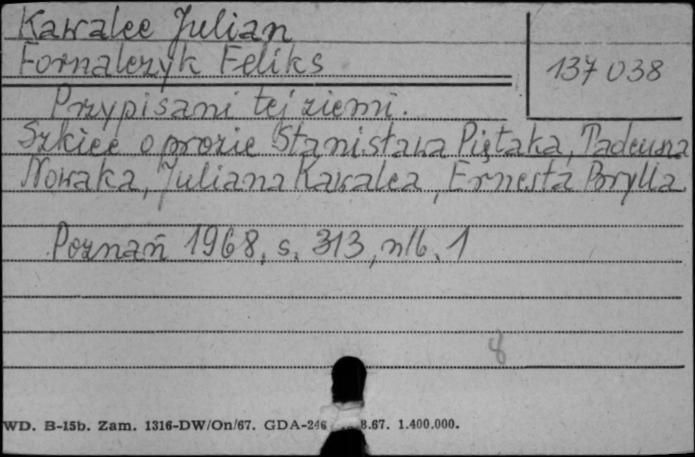 Kawalec Julian
Fornalczyk Feliks
137 038
Przypisani tej ziemi.
Szkice o prozie Stanisława Piętaka, Tadeusza
Nowaka, Juliana Kawalca, Ernesta Brylla
Poznań 1968, s. 313, nlb. 1
8
WD. B-15b. Zam. 1316-DW/On/67. GDA-246 8.67. 1.400.000.